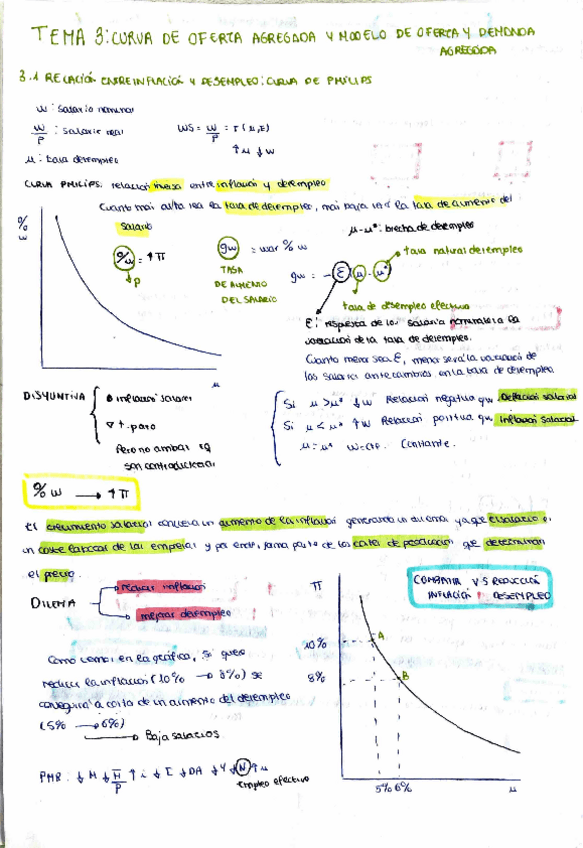 TEMA 3: CURVA DE OFERTA AGREGADA Y MODELO DE OFERTA Y DEMANDA
AGREGADA
3.1 RELACIÓN ENTRE INFLACIÓN Y DESEMPLEO: CURVA DE PHILIPS
W: Salario nominal
W/P: Salario real
WS = W/P = Γ(μ,E)
↑μ ↓w
μ: tasa desempleo
CURVA PHILIPS: relación inversa entre inflación y desempleo
Cuanto más alta sea la tasa de desempleo, más baja será la tasa de aumento del
salario
μ-μ*: brecha de desempleo
% w
%w = ↑π
↓P
gw = var % w
TASA
DE AUMENTO
DEL SALARIO
tasa natural desempleo
gw = -ε(μ-μ*)
tasa de desempleo efectiva
ε: respuesta de los salarios nominales a la
variación de la tasa de desempleo.
Cuanto menor sea ε, menor será la variación de
los salarios ante cambios en la tasa de desempleo
μ
DISYUNTIVA
inflación salarios
∇ ↑.paro
Pero no ambas xq
son contradictorias
Si μ>μ* ↓w Relación negativa que Deflación salarial
Si μ<μ* ↑w Relación positiva que inflación salarial
μ=μ* w=cte. Constante.
% w → ↑π
El crecimiento salarial conlleva un aumento de la inflación generando un dilema ya que el salario es
un coste laboral de las empresas y por ende, forma parte de los costes de producción que determinan
el precio.
DILEMA
reducir inflación
mejorar desempleo
COMBATIR VS REDUCCIÓN
INFLACIÓN DESEMPLEO
π
10%
A
8%
B
Como vemos en la gráfica, si quiero
reducir la inflación (10% → 8%) se
conseguirá a costa de un aumento del desempleo
(5% → 6%)
Baja salarios
PMR: ↓M ↓M/P ↑i ↓I ↓DA ↓Y ↓N ↑μ
Empleo efectivo
5% 6%
μ